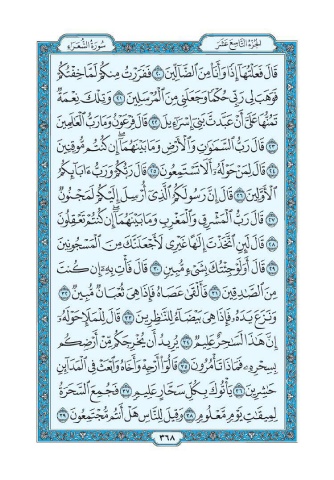 الجزء التاسع عشر
سورة الشعراء
قَالَ فَعَلْتُهَآ إِذًا وَأَنَا۠ مِنَ ٱلضَّآلِّينَ ٢٠ فَفَرَرْتُ مِنكُمْ لَمَّا خِفْتُكُمْ
فَوَهَبَ لِى رَبِّى حُكْمًا وَجَعَلَنِى مِنَ ٱلْمُرْسَلِينَ ٢١ وَتِلْكَ نِعْمَةٌ
تَمُنُّهَا عَلَىَّ أَنْ عَبَّدتَّ بَنِىٓ إِسْرَٰٓءِيلَ ٢٢ قَالَ فِرْعَوْنُ وَمَا رَبُّ ٱلْعَٰلَمِينَ
٢٣ قَالَ رَبُّ ٱلسَّمَٰوَٰتِ وَٱلْأَرْضِ وَمَا بَيْنَهُمَآ إِن كُنتُم مُّوقِنِينَ
٢٤ قَالَ لِمَنْ حَوْلَهُۥٓ أَلَا تَسْتَمِعُونَ ٢٥ قَالَ رَبُّكُمْ وَرَبُّ ءَابَآئِكُمُ
ٱلْأَوَّلِينَ ٢٦ قَالَ إِنَّ رَسُولَكُمُ ٱلَّذِىٓ أُرْسِلَ إِلَيْكُمْ لَمَجْنُونٌ
٢٧ قَالَ رَبُّ ٱلْمَشْرِقِ وَٱلْمَغْرِبِ وَمَا بَيْنَهُمَآ إِن كُنتُمْ تَعْقِلُونَ
٢٨ قَالَ لَئِنِ ٱتَّخَذْتَ إِلَٰهًا غَيْرِى لَأَجْعَلَنَّكَ مِنَ ٱلْمَسْجُونِينَ
٢٩ قَالَ أَوَلَوْ جِئْتُكَ بِشَىْءٍ مُّبِينٍ ٣٠ قَالَ فَأْتِ بِهِۦٓ إِن كُنتَ
مِنَ ٱلصَّٰدِقِينَ ٣١ فَأَلْقَىٰ عَصَاهُ فَإِذَا هِىَ ثُعْبَانٌ مُّبِينٌ ٣٢
وَنَزَعَ يَدَهُۥ فَإِذَا هِىَ بَيْضَآءُ لِلنَّٰظِرِينَ ٣٣ قَالَ لِلْمَلَإِ حَوْلَهُۥٓ
إِنَّ هَٰذَا لَسَٰحِرٌ عَلِيمٌ ٣٤ يُرِيدُ أَن يُخْرِجَكُم مِّنْ أَرْضِكُم
بِسِحْرِهِۦ فَمَاذَا تَأْمُرُونَ ٣٥ قَالُوٓا۟ أَرْجِهْ وَأَخَاهُ وَٱبْعَثْ فِى ٱلْمَدَآئِنِ
حَٰشِرِينَ ٣٦ يَأْتُوكَ بِكُلِّ سَحَّارٍ عَلِيمٍ ٣٧ فَجُمِعَ ٱلسَّحَرَةُ
لِمِيقَٰتِ يَوْمٍ مَّعْلُومٍ ٣٨ وَقِيلَ لِلنَّاسِ هَلْ أَنتُم مُّجْتَمِعُونَ ٣٩
٣٦٨